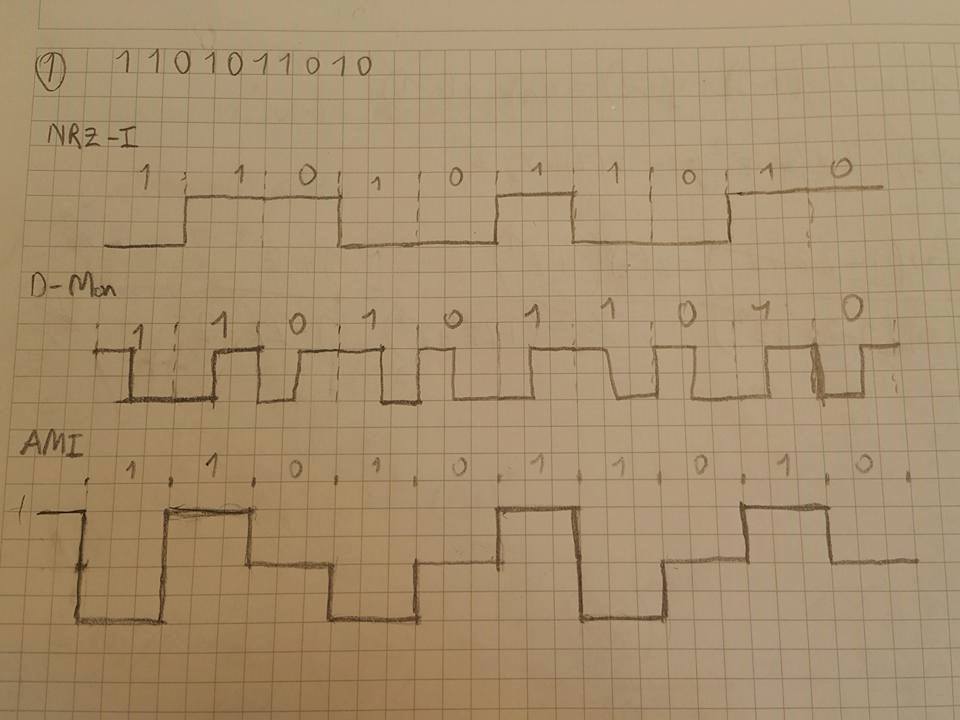 ① 1101011010
NRZ-I
1 1 0 1 0 1 1 0 1 0
D-Man
1 1 0 1 0 1 1 0 1 0
AMI
1 1 0 1 0 1 1 0 1 0
+